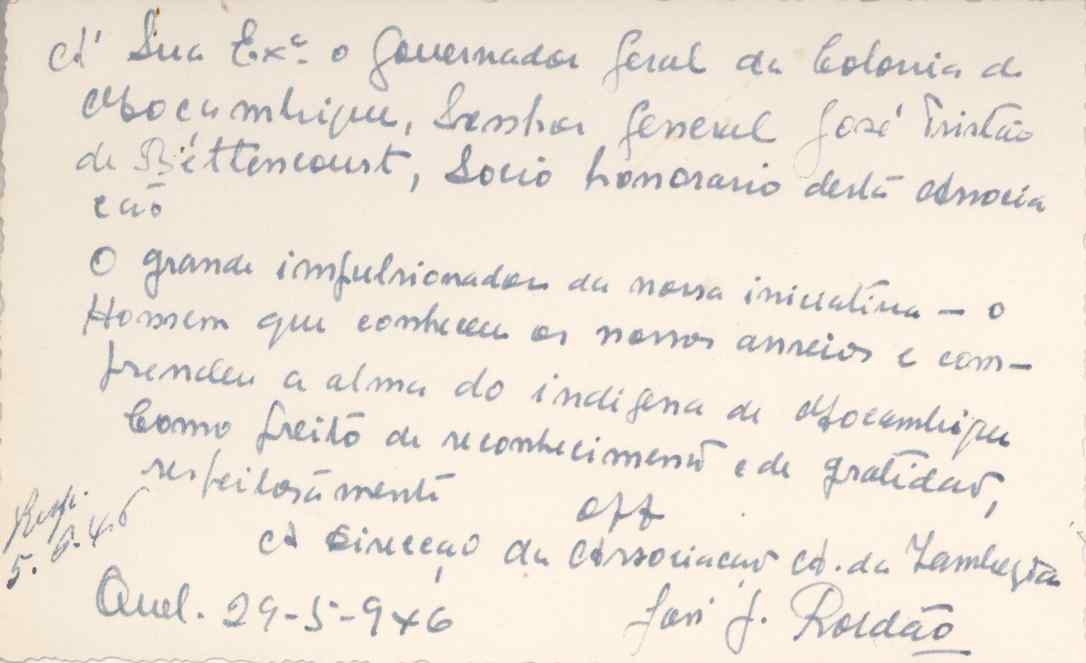 A' Sua Exª. o Governador Geral da Colonia de
Moçambique, Senhor General José Tristão
de Bettencourt, Socio honorario desta Associa
ção
O grande impulsionador da nossa iniciativa – o
Homem que conheceu os nossos anseios e com–
prendeu a alma do indigena de Moçambique
Como preito de reconhecimento e de gratidão,
respeitosamente
Off
A Direcção da Associação A. da Zambezia
5.6.46
Quel. 29-5-946
José J. Roldão